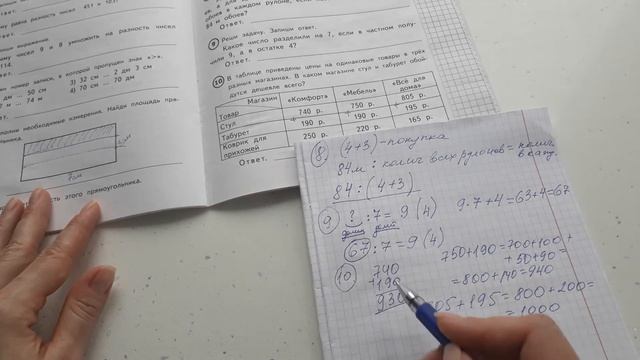 равна разность чисел 451 и
Ответ.
числа 9 и 8 умножить на разность чисел
114.
номер записи, в которой пропущен знак «>».
дм ... 50 см 3) 32 см ... 2 дм 3 см
м ... 74 м 4) 70 см ... 70 дм
необходимые измерения. Найди площадь
7см
этого прямоугольника.
в каждом рулоне, если
84 м обоев?
Ответ.
9 Реши задачу. Запиши ответ.
Какое число разделили на 7, если в частном полу-
чили 9, а в остатке 4?
Ответ.
10 В таблице приведены цены на одинаковые товары в трёх
разных магазинах. В каком магазине стул и табурет обой-
дутся дешевле всего?
Магазин «Комфорт» «Мебель» «Всё для дома»
Товар
Стул 740 р. 750 р. 805 р.
Табурет 190 р. 190 р. 195 р.
Коврик для прихожей 250 р. 220 р. 165 р.
Ответ.
8 (4+3) - покупка
84м : колич всех рулонов = колич
в 1
84 : (4+3)
9 ? : 7 = 9 (4) 9·7+4=63+4=67
67 : 7 = 9 (4)
10 740
+190
930
750+190=700+100+
+50+90=
=800+140=940
805+195=800+200=
=1000